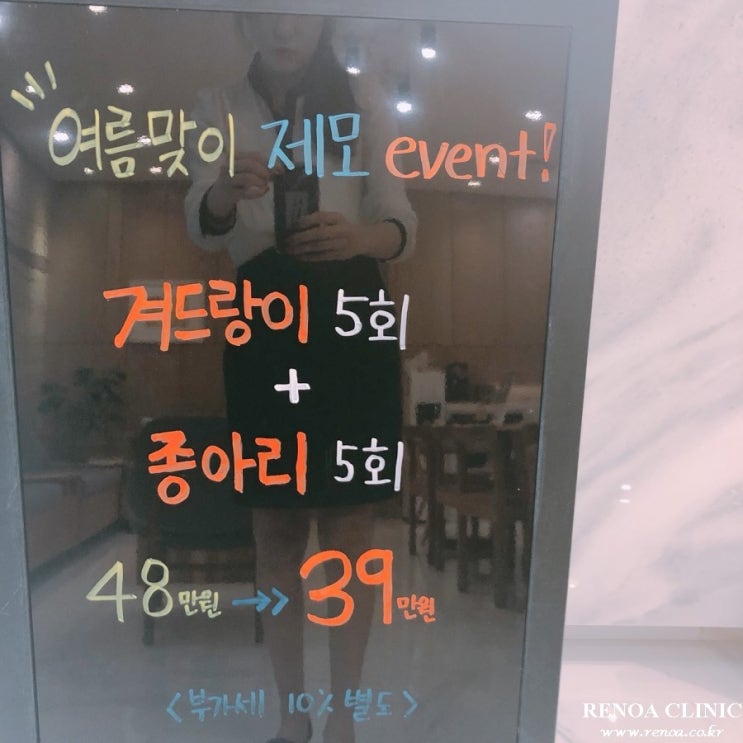 여름맞이 제모 event!
겨드랑이 5회
+
종아리 5회
48만원 →>> 39만원
<부가세 10% 별도>
RENOA CLINIC
www.renoa.co.kr